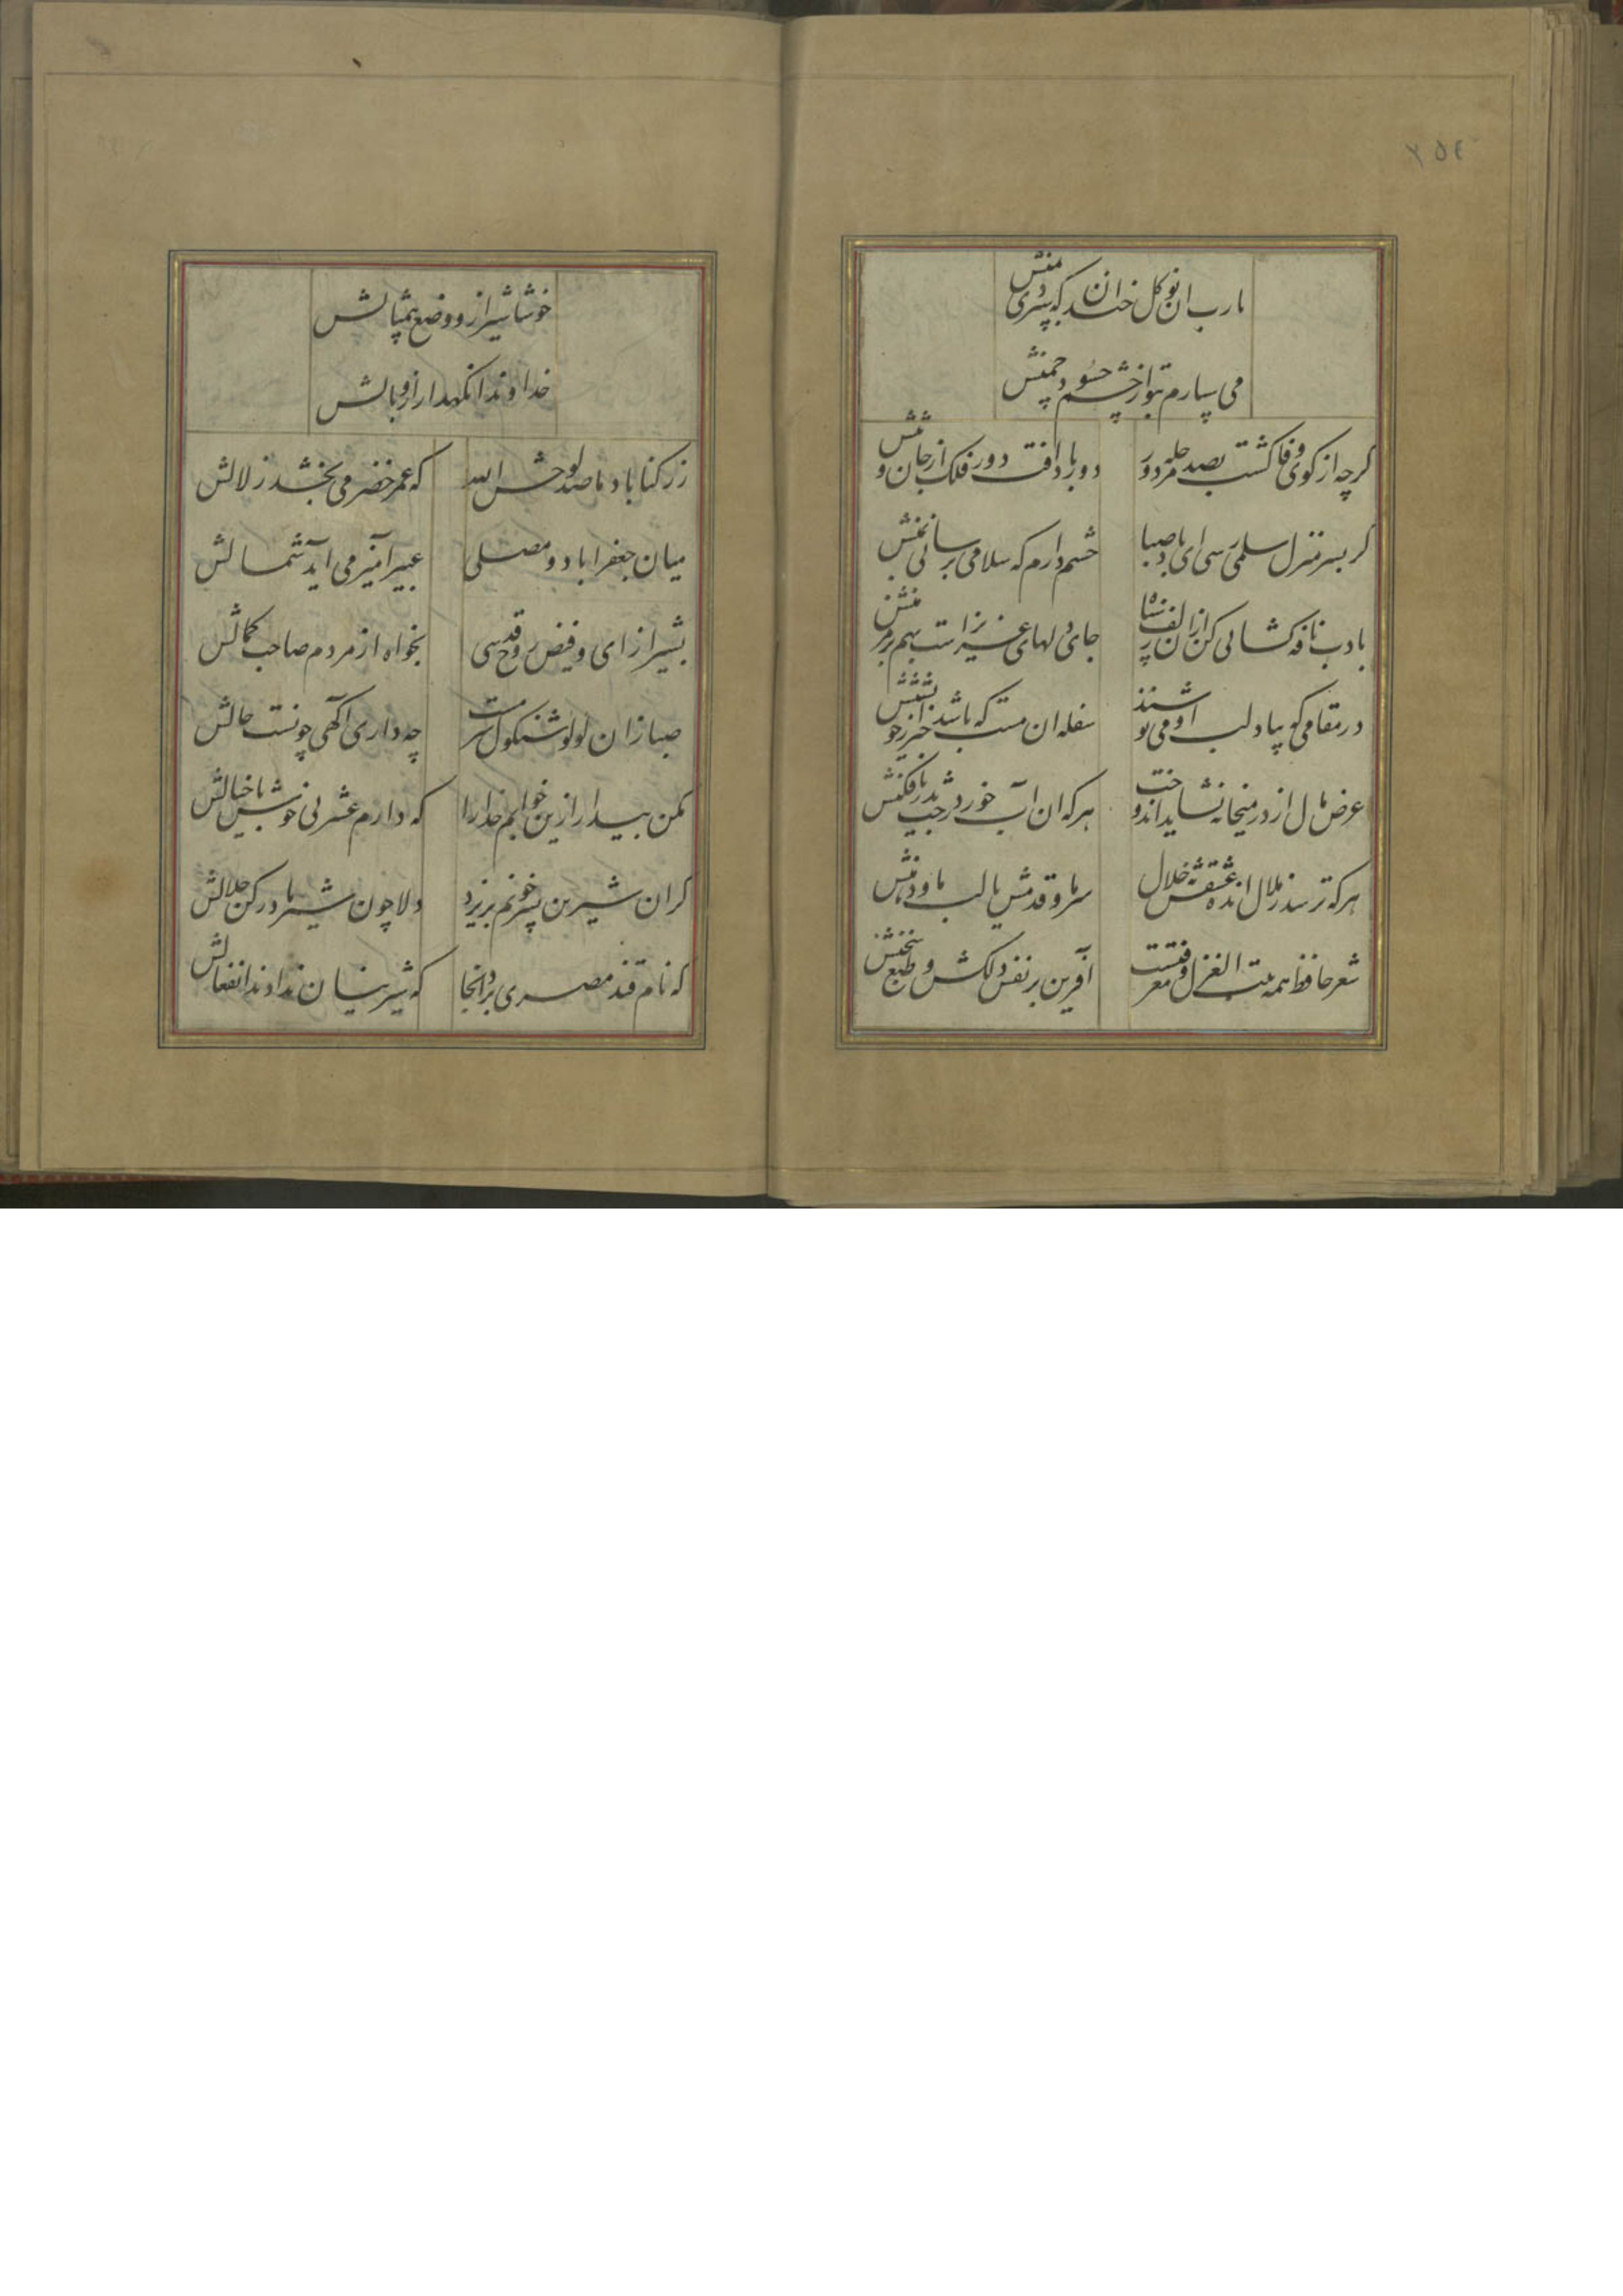 ۲۵٤
یارب ان نوکل خندان که سپردی بمنش
می سپارم بتو از چشم حسود چمنش
کرچه از کوی وفا کشت بصد مرحله دور
دور باد افت دور فلک از جان و تنش
کر بسر منزل سلمی رسی ای باد صبا
چشم دارم که سلامی برسانی ز منش
بادب نافه کشائی کن ازان زلف سیاه
جای دلهای عزیز است بهم بر مزنش
در مقامی که بیاد لب او می نوشند
سفله ان مست که باشد خبر از خویشتنش
عرض مال از در میخانه نشاید اندوخت
هرکه ان آب خورد رخت بدریا فکنش
هرکه ترسد ز ملال انده عشقش نه حلال
سر ما و قدمش یا لب ما و دهنش
شعر حافظ همه بیت الغزل معرفتست
آفرین بر نفس دلکش و طبع سخنش
خوشا شیراز و وضع بیمثالش
خداوندا نکهدار از وبالش
ز رکناباد ما صد لوحش الله
که عمر خضر می بخشد زلالش
میان جعفراباد و مصلی
عبیر آمیز می آید شمالش
بشیراز ای و فیض روح قدسی
بخواه از مردم صاحب کمالش
صبا زان لولو شنکول سرمست
چه داری آکهی چونست حالش
مکن بیدار ازین خوابم خدا را
که دارم عشرتی خوش با خیالش
کر ان شیرین پسر خونم بریزد
دلا چون شیر مادر کن حلالش
که نام قند مصری برد انجا
که شیرینان ندادند انفعالش